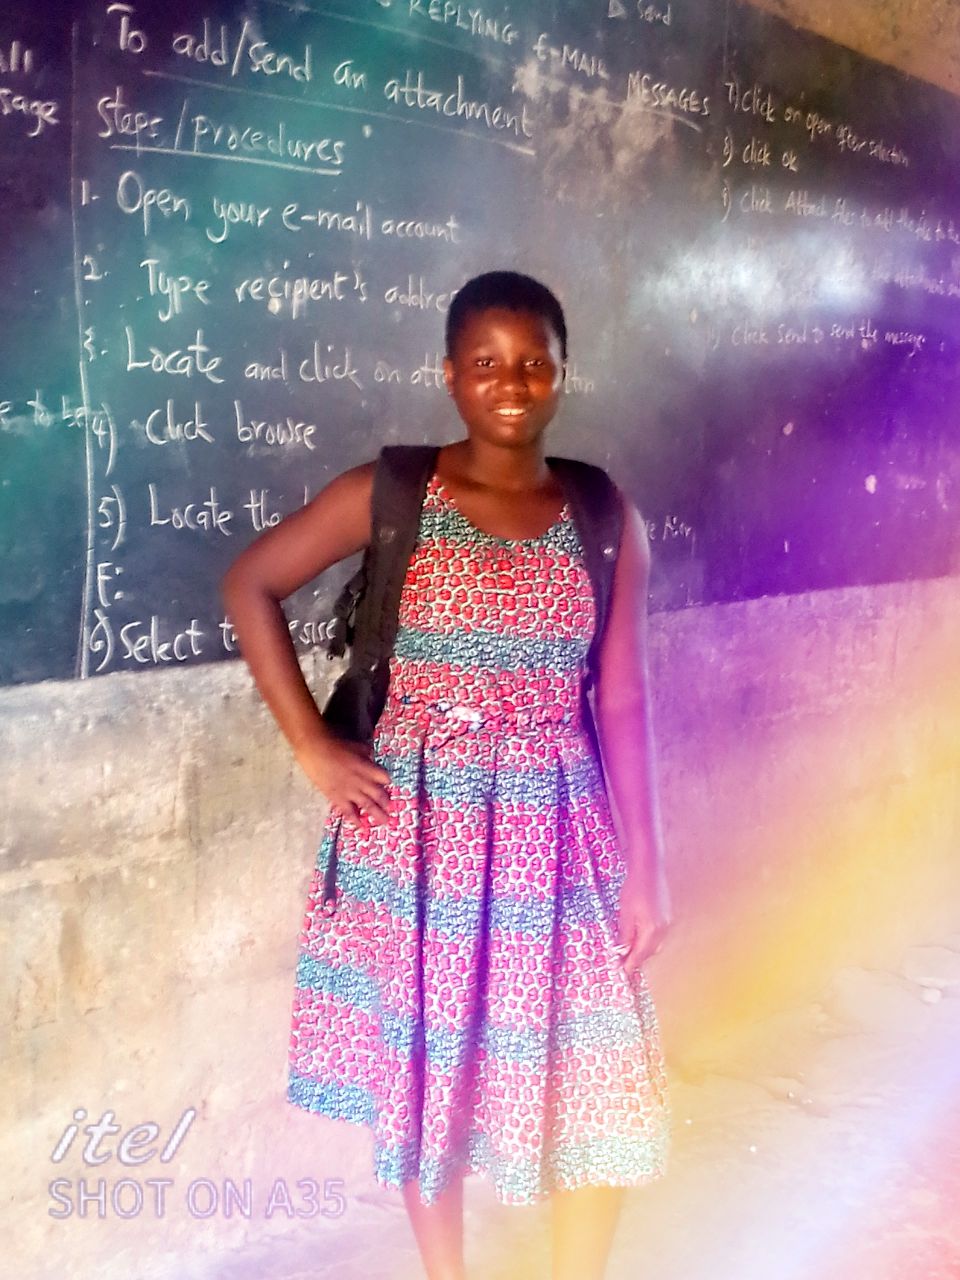 REPLYING E-MAIL MESSAGES
Send
To add/send an attachment
Steps/procedures
1. Open your e-mail account
2. Type recipient's addre
3. Locate and click on atta
4) Click browse
5) Locate the
F:
6) Select t
sage
7) Click on open after selection
8) click ok
9) Click Attach files to add the files to the
the attachment
Click Send to send the message
itel
SHOT ON A35